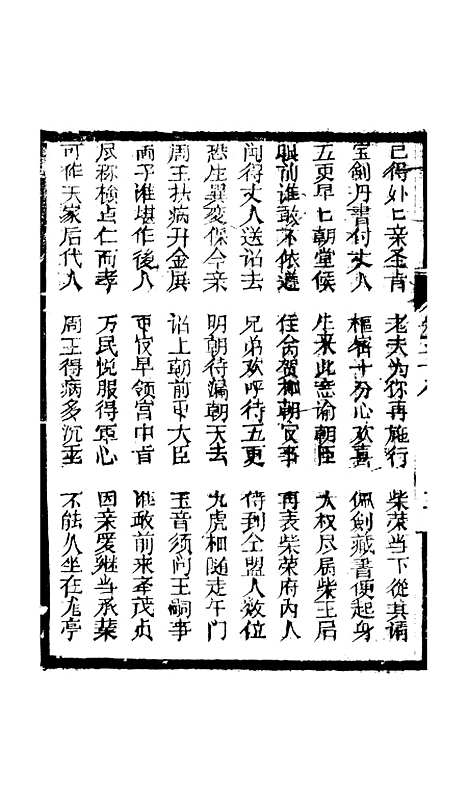 已得外亡亲圣肯 老夫为你再施行 柴荣当下從其請
宝劍丹書付丈人 樞密十分心欢喜 佩劍藏書便起身
五更早上朝堂候 生來此意谕朝臣 大权尽属柴王后
眼前谁敢不依遵 任尚贺和朝官事 再表柴荣府內人
闻得丈人送詔去 兄弟欢呼待五更 侍到仝盟人数位
恐生異变保今亲 明朝待漏朝天去 九虎相随走午门
周王扶病升金展 詔上朝前 大臣 玉音须问王嗣事
而子谁堪作後人 早领宮中肯 谁敢前来奉茂貞
尽称検点仁而孝 万民悦服得軍心 因亲爱継当承業
可作天家后代人 周王得病多沉重 不能久坐在龙亭